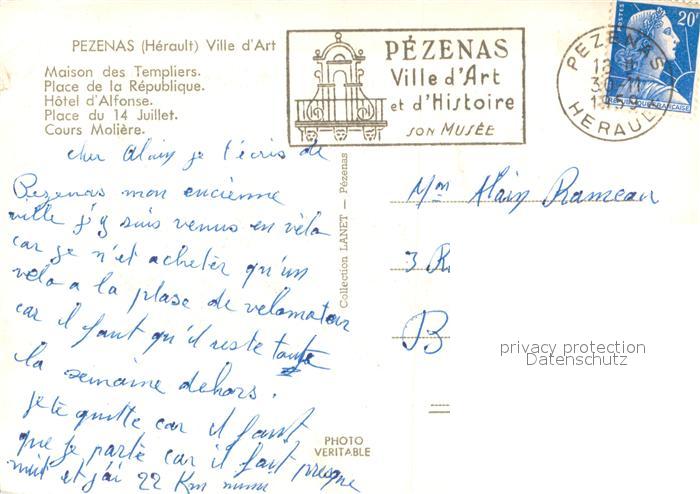 PEZENAS (Hérault) Ville d'Art
Maison des Templiers.
Place de la République.
Hôtel d'Alfonse.
Place du 14 Juillet.
Cours Molière.
PÉZENAS
Ville d'Art
et d'Histoire
SON MUSÉE
PEZENAS
30-11
1959
HERAULT
POSTES
20F
REPUBLIQUE FRANÇAISE
cher Alain je t'écris de
Pezenas mon encienne
ville j'y suis venus en vélo
car je n'et acheter qu'un
velo a la plase de velomateur
car il faut qu'il reste toute
la semaine dehors.
je te quitte car il faut
que je parte car il fait presque
nuit et j'ai 22 Km
Collection LANET — Pézenas
PHOTO
VERITABLE
Mm Alain Rameau
3 R
B
privacy protection
Datenschutz